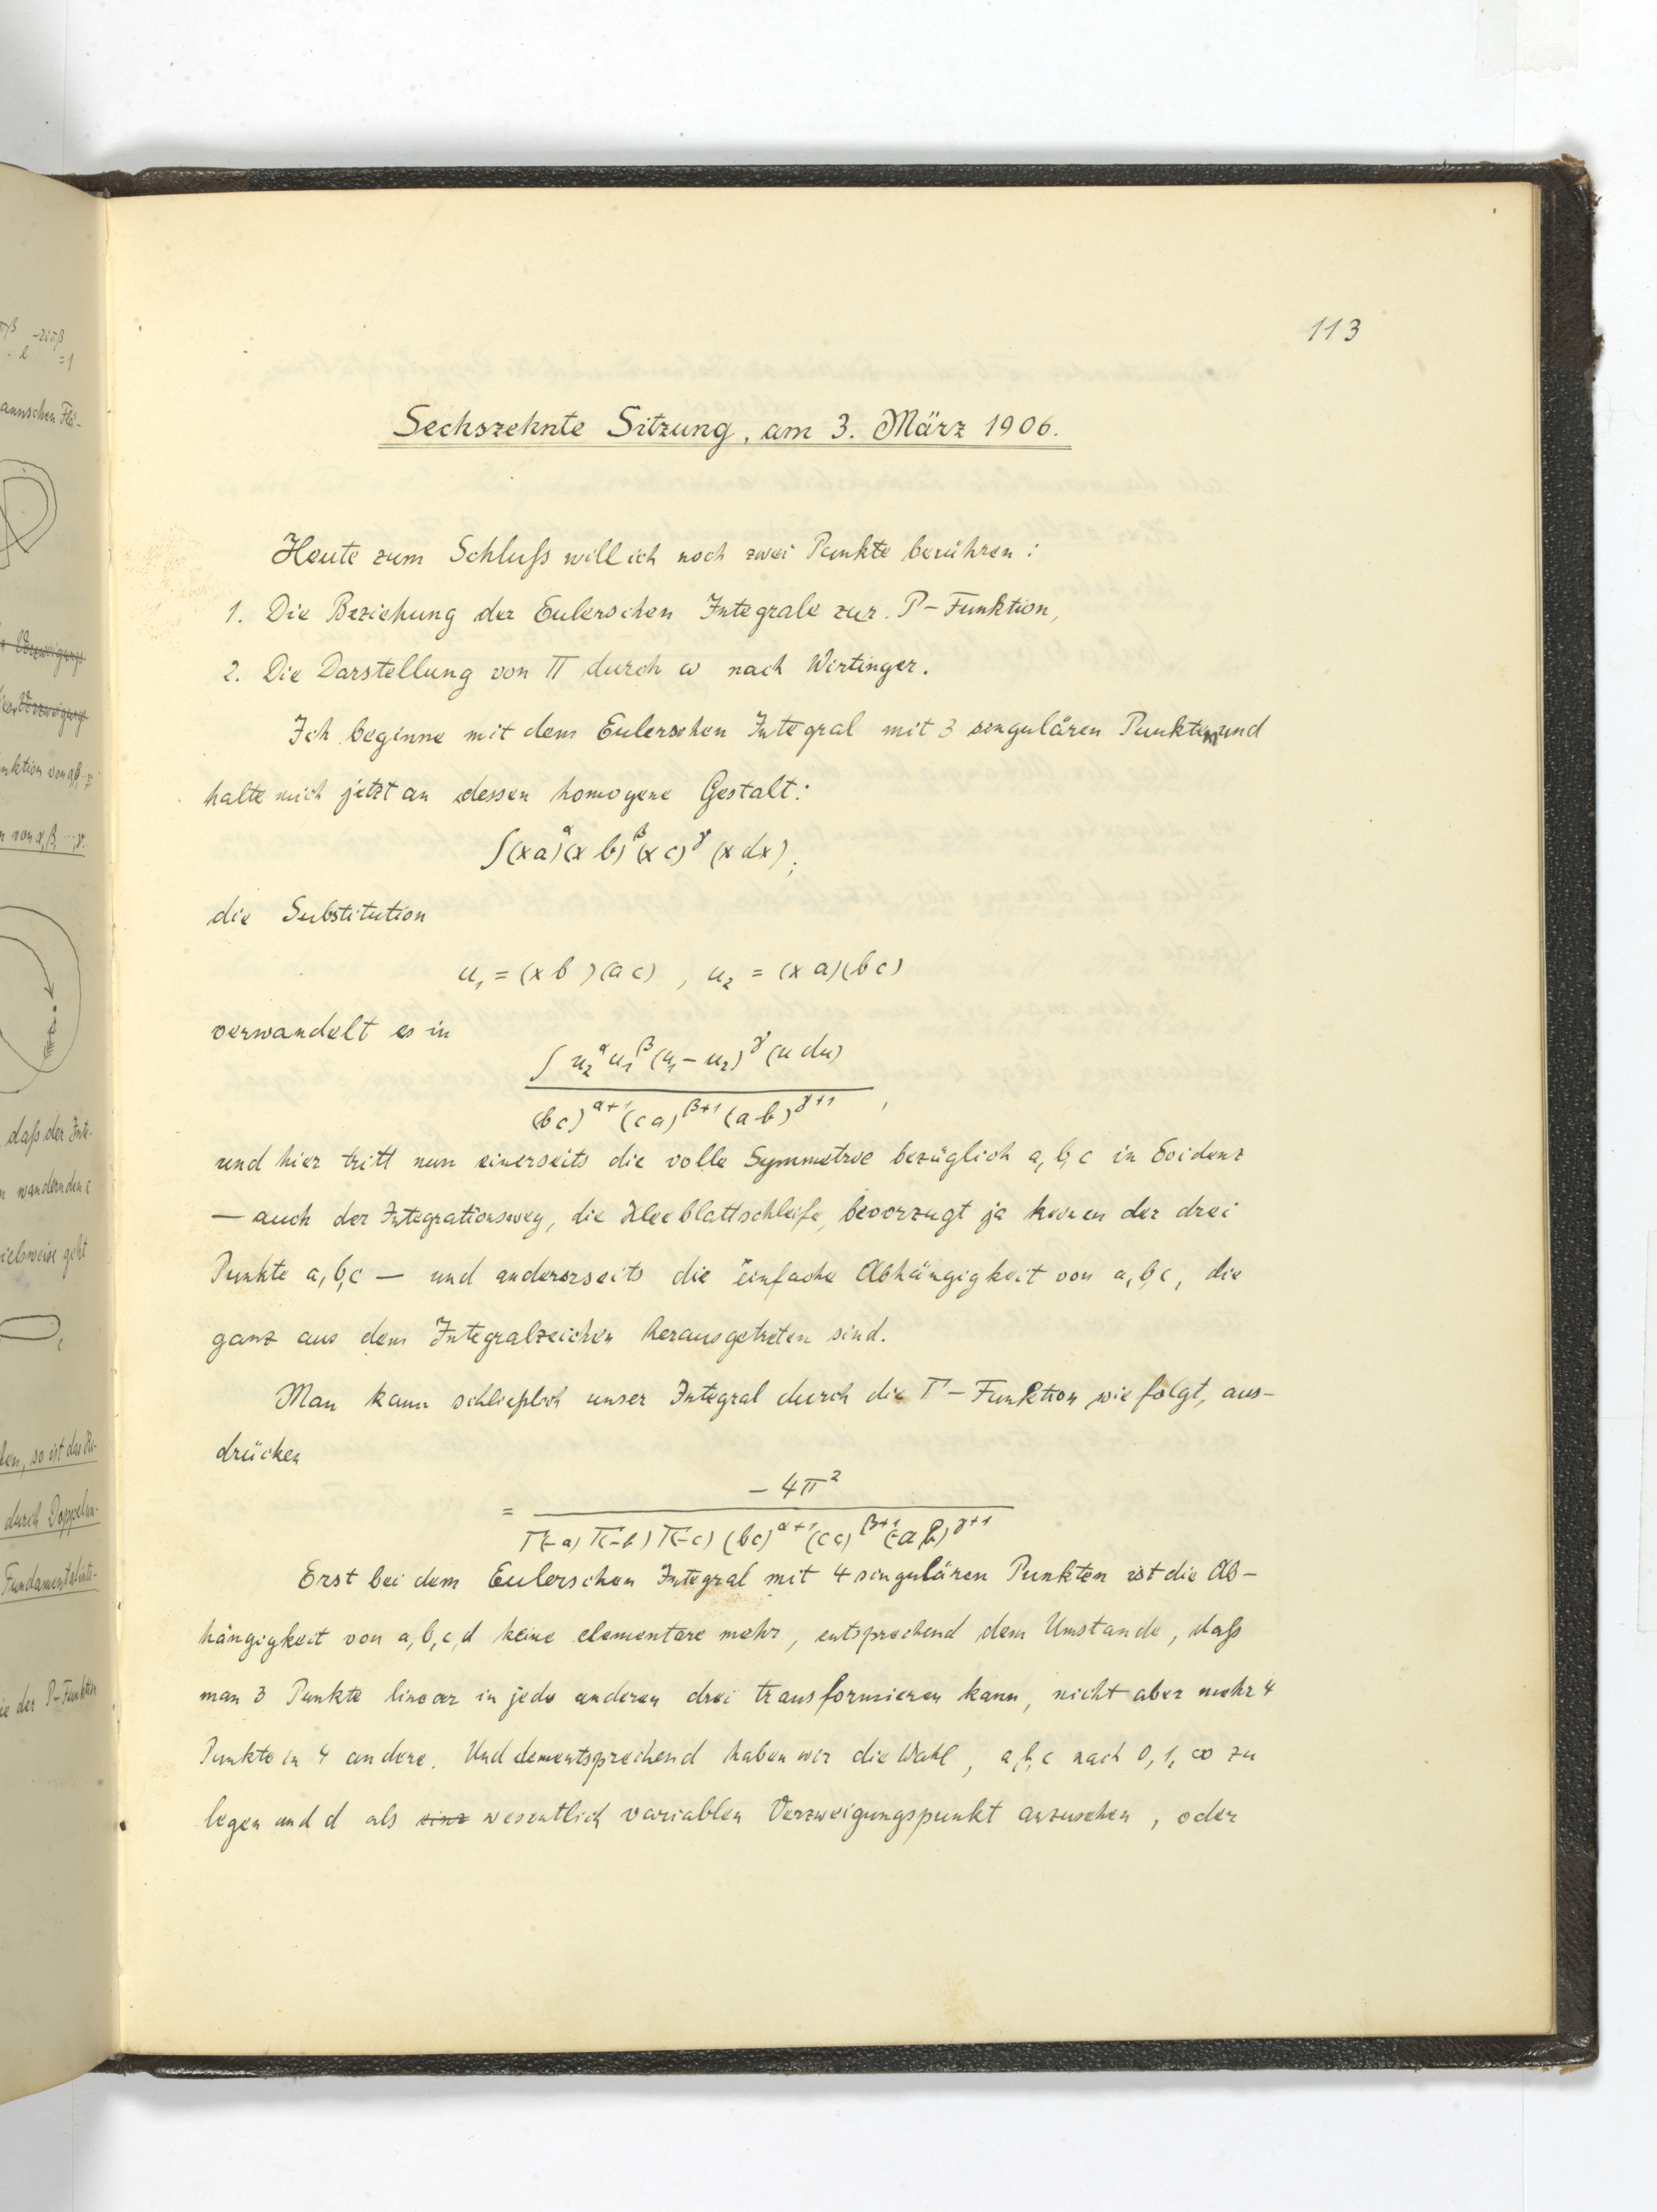 113
Sechszehnte Sitzung, am 3. März 1906.
Heute zum Schluß will ich noch zwei Punkte berühren:
1. Die Beziehung der Eulerschen Integrale zur P-Funktion,
2. Die Darstellung von Π durch ω nach Wirtinger.
Ich beginne mit dem Eulerschen Integral mit 3 singulären Punkten und
halte mich jetzt an dessen homogene Gestalt:
∫(xa)^α (xb)^β (xc)^γ (x dx),
die Substitution
u₁ = (xb)(ac), u₂ = (xa)(bc)
verwandelt es in
∫ u₂^α u₁^β (u₁ - u₂)^γ (u du)
(bc)^{α+1} (ca)^{β+1} (ab)^{γ+1},
und hier tritt nun einerseits die volle Symmetrie bezüglich a, b, c in Evidenz
— auch der Integrationsweg, die Kleeblattschleife, bevorzugt ja keinen der drei
Punkte a, b, c — und andererseits die einfache Abhängigkeit von a, b, c, die
ganz aus dem Integralzeichen herausgetreten sind.
Man kann schließlich unser Integral durch die Γ-Funktion wie folgt, aus-
drücken
= -4π²
Γ(-a) Γ(-b) Γ(-c) (bc)^{α+1} (ca)^{β+1} (ab)^{γ+1}
Erst bei dem Eulerschen Integral mit 4 singulären Punkten ist die Ab-
hängigkeit von a, b, c, d keine elementare mehr, entsprechend dem Umstande, daß
man 3 Punkte linear in jede anderen drei transformieren kann, nicht aber mehr 4
Punkte in 4 andere. Und dementsprechend haben wir die Wahl, a, b, c nach 0, 1, ∞ zu
legen und d als wesentlich variablen Verzweigungspunkt anzusehen, oder